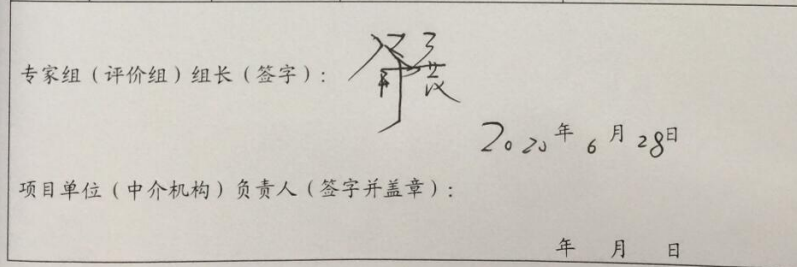 专家组（评价组）组长（签字）：
2020年6月28日
项目单位（中介机构）负责人（签字并盖章）：
年 月 日